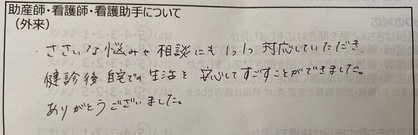 助産師・看護師・看護助手について
(外来)
・ささいな悩みや相談にも1つ1つ対応していただき、
健診後自宅での生活を安心してすごすことができました。
ありがとうございました。